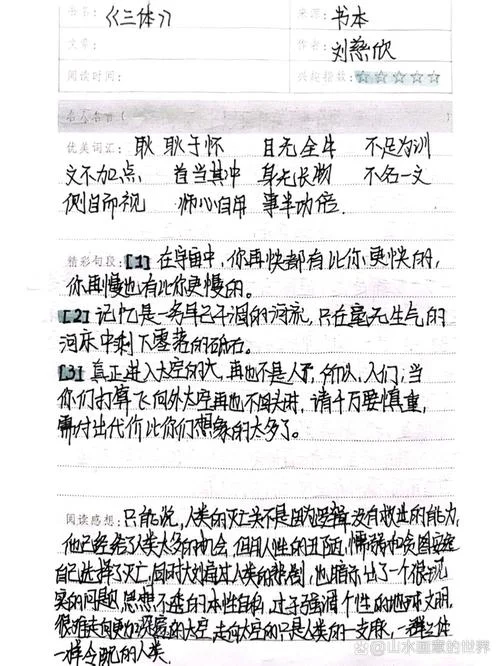 书名：《三体》 来源：书本
文章： 作者：刘慈欣
阅读时间： 兴趣指数：☆☆☆☆☆
名人名言（
优美词汇：耿耿于怀 目无全牛 不足为训
文不加点 首当其中 身无长物 不名一文
侧目而视 师心自用 事半功倍.
精彩句段：【1】在宇宙中，你再快都有比你更快的，
你再慢也有比你更慢的。
【2】记忆是一条早已干涸的河流，只在毫无生气的
河床中剩下零落的砾石。
【3】真正进入太空的人，再也不是人了，所以，人们；当
你们打算飞向外太空再也不回头时，请千万要慎重，
需付出代价比你们想象的太多了。
阅读感想：只能说，人类的灭亡并不是因为逻辑没有救世的能力，
他已经给了人类太多的机会，但因人性的丑陋，懦弱和贪图安逸
自己选择了灭亡，同时大刘通过人类的悲剧，也暗示出了一个很现
实的问题，思想不透的本性自私，过于强调个性的地球文明，
很难走向更加深邃的太空，走向太空的只是人类的一支脉，一
一样令脆的人类
@山水画意的世界